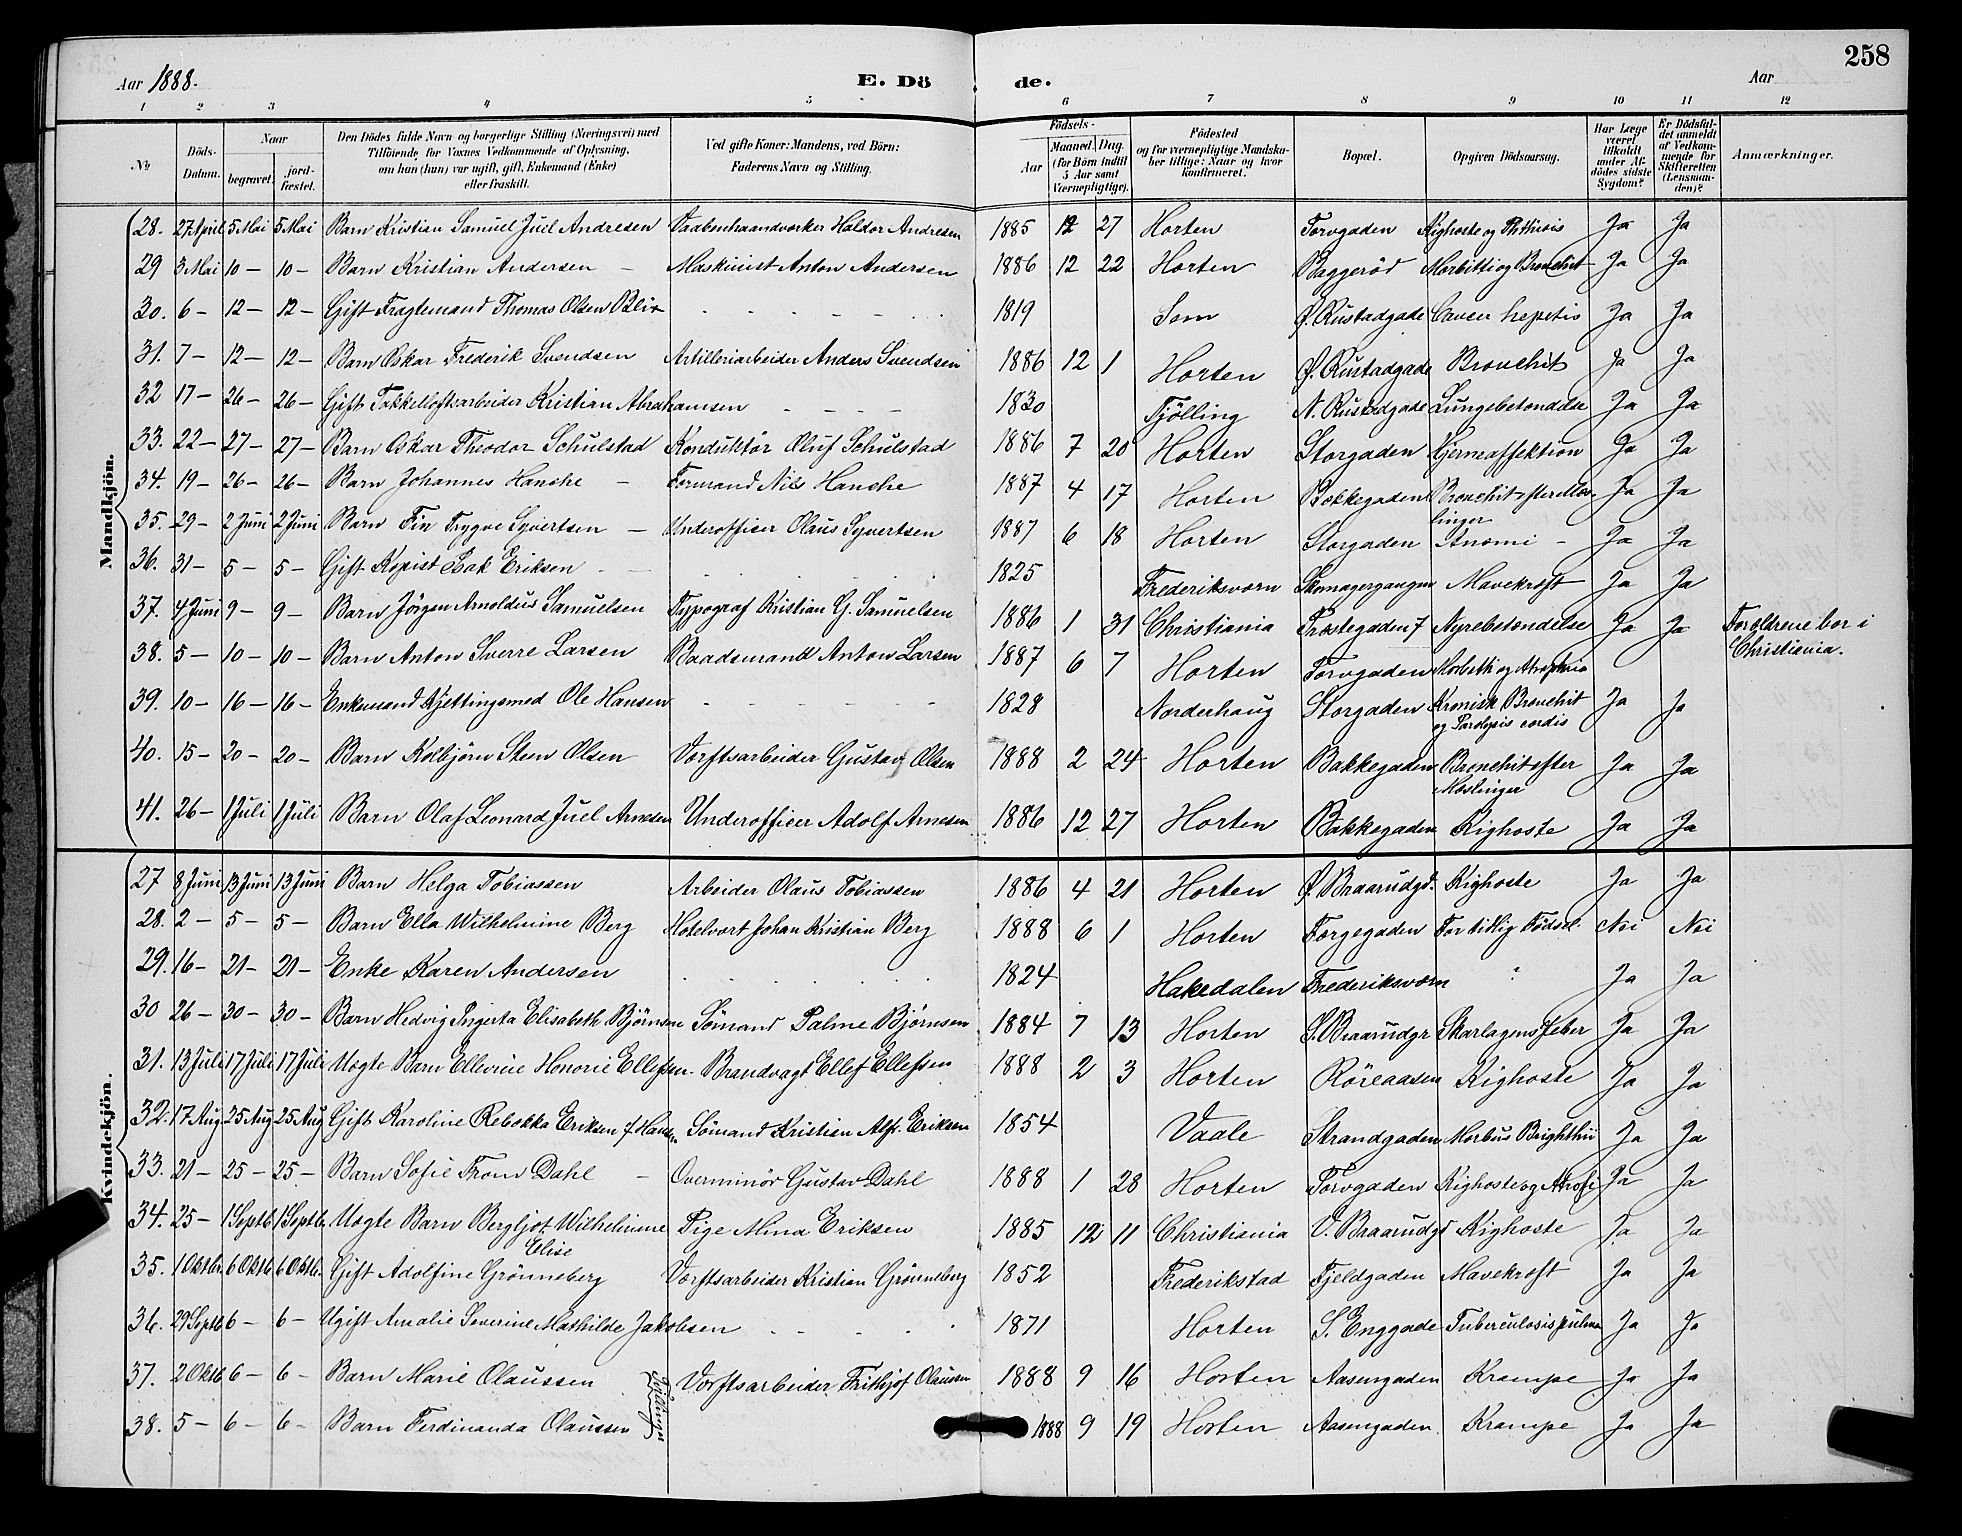 258
Aar 1888. E. Dö de. Aar
1 2 3 4 5 6 7 8 9 10 11 12
No
Döds-Datum.
Naar begravet. jordfæstet.
Den Dödes fulde Navn og borgerlige Stilling (Næringsvei) med Tilföiende, for Voxnes Vedkommende af Oplysning, om han (hun) var ugift, gift, Enkemand (Enke) eller fraskilt.
Ved gifte Koner: Mandens, ved Börn: Faderens Navn og Stilling.
Födsels- Aar Maaned. Dag. (for Börn indtil 5 Aar samt Værnepligtige).
Födested og for værnepligtige Mandskaber tillige: Naar og hvor konfirmeret.
Bopæl.
Opgiven Dödsaarsag.
Har Læge været tilkaldt under Afdödes sidste Sygdom?
Er Dödsfaldet anmeldt af Vedkommende for Skifteretten (Lensmanden)?
Anmærkninger.
Mandkjön.
28. 27 April 5 Mai 5 Mai Barn Kristian Samuel Juel Andresen Vaabenhaandværker Haldor Andresen 1885 12 27 Horten Torvgaden Kighoste og Phthisis Ja Ja
29 3 Mai 10 – 10 – Barn Kristian Andersen – Maskinist Anton Andersen 1886 12 22 Horten Baggeröd Morbilli og Bronchit Ja Ja
30. 6 – 12 – 12 – Gift Fragtemand Thomas Olsen Blix 1819 Sem Ø. Rustadgade Cancer hepatis Ja Ja
31. 7 – 12 – 12 – Barn Oskar Frederik Svendsen Artilleriarbeider Anders Svendsen 1886 12 1 Horten Ø. Rustadgade Bronchit Ja Ja
32 17 – 26 – 26 – Gift Takkelloftsarbeider Kristian Abrahamsen – – – – 1830 Tjölling N. Rustadgade Lungebetændelse Ja Ja
33. 22 – 27 – 27 – Barn Oskar Theodor Schulstad Konduktör Oluf Schulstad 1886 7 20 Horten Storgaden Hjerneaffektion Ja Ja
34. 19 – 26 – 26 – Barn Johannes Hanche – Formand Nils Hanche 1887 4 17 Horten Bakkegaden Bronchit efter Mæslinger Ja Ja
35. 29 – 2 Juni 2 Juni Barn Fin Trygve Syvertsen – Underofficer Olaus Syvertsen 1887 6 18 Horten Storgaden Anæmi – Ja Ja
36. 31 – 5 – 5 – Gift Kopist Isak Eriksen 1825 Frederiksværn Skomagergangen Mavekræft Ja Ja
37. 4 Juni 9 – 9 – Barn Jörgen Arnoldus Samuelsen Typograf Kristian G. Samuelsen 1886 1 31 Christiania Præstegaden 7 Nyrebetændelse Ja Ja Forældrene bor i Christiania.
38. 5 – 10 – 10 – Barn Anton Sverre Larsen Baadsmand Anton Larsen 1887 6 7 Horten Torvgaden og Atrophia
39. 10 – 16 – 16 – Enkemand Kjettingsmed Ole Hansen 1828 Norderhaug Storgaden Kronisk Bronchit og Paralysis cordis Ja Ja
40. 15 – 20 – 20 – Barn Kolbjörn Steen Olsen Værftsarbeider Gustav Olsen 1888 2 24 Horten Bakkegaden Bronchit efter Mæslinger Ja Ja
41. 26 – 1 Juli 1 Juli Barn Olaf Leonard Juel Arnesen Underofficer Adolf Arnesen 1886 12 27 Horten Bakkegaden Kighoste Ja Ja
Kvindekjön.
27 8 Juni 13 Juni 13 Juni Barn Helga Tobiassen Arbeider Olaus Tobiassen 1886 4 21 Horten Ø. Braarudgd. Kighoste Ja Ja
28. 2 – 5 – 5 – Barn Ella Wilhelmine Berg Hotelvært Johan Kristian Berg 1888 6 1 Horten Torvgaden For tidlig Födsel. Nei Nei
29. 16 – 21 – 21 – Enke Karen Andersen 1824 Hakedalen Frederiksværn ? Ja Ja
30 26 – 30 – 30 – Barn Hedvig Ingerta Elisabeth Björnsen Sömand Palme Björnsen 1884 7 13 Horten S. Braarudgr Skarlagensfeber Ja Ja
31. 13 Juli 17 Juli 17 Juli Uægte Barn Ellevine Honorie Ellefsen. Brandvagt Ellef Ellefsen 1888 2 3 Horten Röreaasen Kighoste Ja Ja
32. 17 Aug 25 Aug 25 Aug Gift Karoline Rebekka Eriksen f. Hansen Sömand Kristian Alf. Eriksen 1854 Vaale Strandgaden Morbus Brighthii Ja Ja
33. 21 – 25 – 25 – Barn Sofie From Dahl – Overminör Gustav Dahl 1888 1 28 Horten Torvgaden Kighoste og Ja Ja
34. 25 – 1 Septb. 1 Septb. Uægte Barn Bergljot Wilhelmine Elise Pige Mina Eriksen 1885 12 11 Christiania V. Braarudgd Kighoste Ja Ja
35. 1 Oktbr. 6 Oktb. 6 Oktb. Gift Adolfine Grönneberg Værftsarbeider Kristian Grönneberg 1852 Frederikstad Fjeldgaden Mavekræft Ja Ja
36. 29 Septb 6 – 6 – Ugift Amalie Severine Mathilde Jakobsen 1871 Horten S. Enggade Tuberculosis pulm Ja Ja
37. 2 Oktb 6 – 6 – Barn Marie Olaussen Tvillinger Værftsarbeider Frithjof Olaussen 1888 9 16 Horten Aasengaden Krampe Ja Ja
38. 5 – 6 – 6 – Barn Ferdinanda Olaussen 1888 9 19 Horten Aasengaden. Krampe Ja Ja